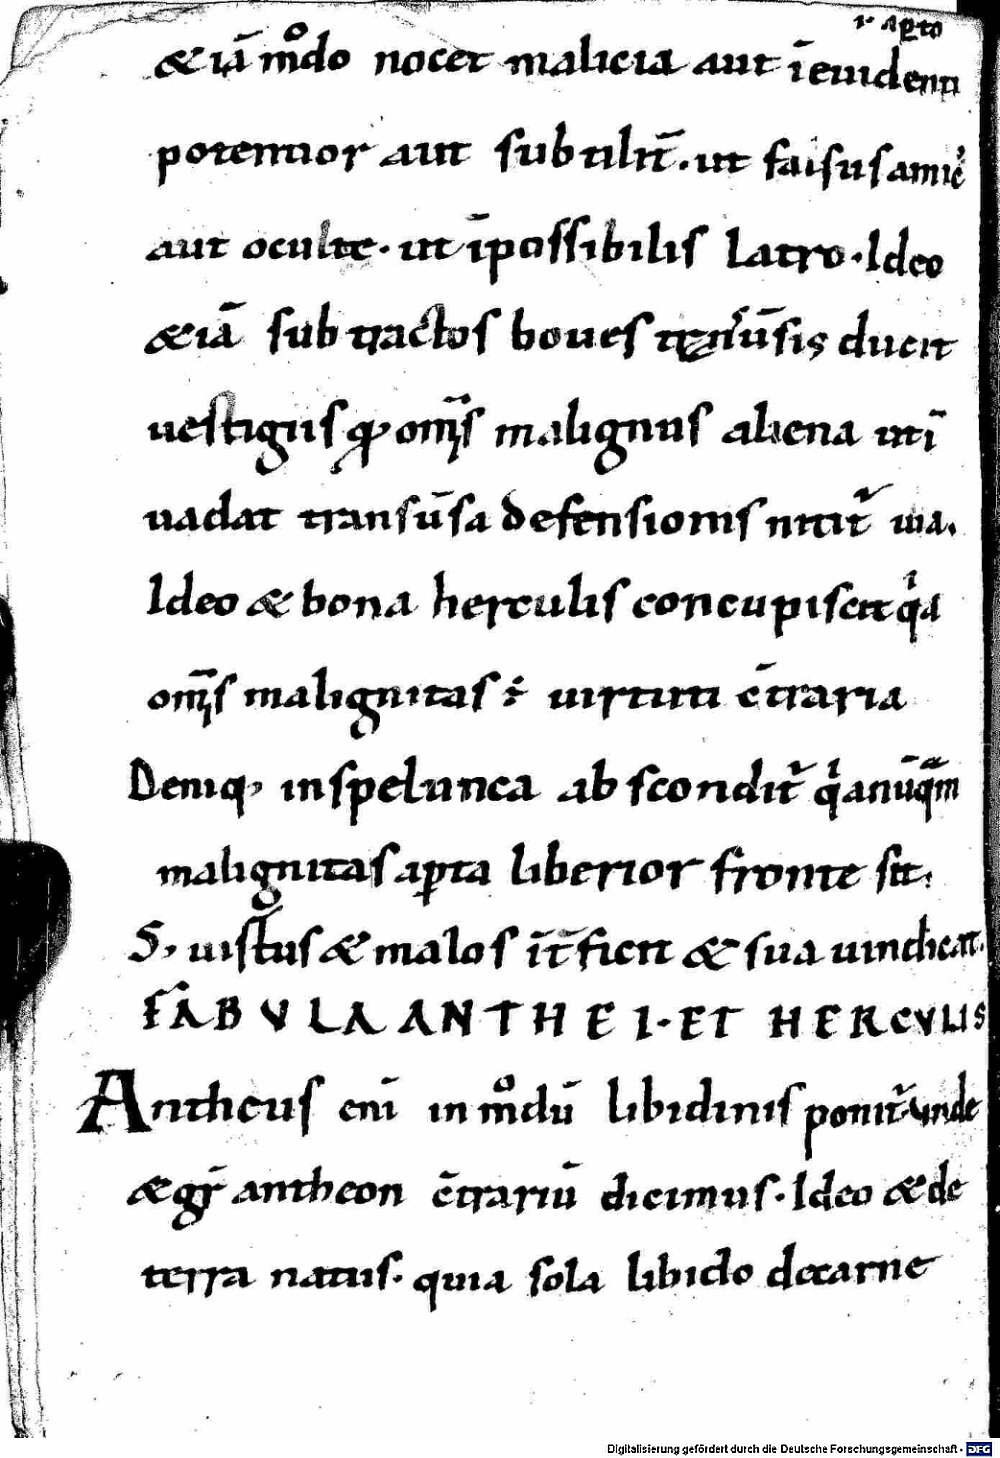 ł apto
&iā mͦdo nocet malicia aut ī euidenti
potentior aut subtilit̄. ut falsus amic᾽
aut oculte. ut īpossibilis latro. Ideo
&iā subtractos boues trānsūsis ducit
uestigiis q; om̄s malignus aliena uti
uadat transūsa defensionis nitit᷑ uia.
Ideo & bona herculis concupiscit qͥa
om̄s malignitas ÷ uirtuti c̄traria
Deniq; in spelunca abscondit᷑ qͥa nūqᷓm
malignitas aꝑta liberior fronte sit.
S; uistus & malos īt̄ficit & sua uindicat.
FABULA ANTHEI. ET HERCVLIS
Antheus enī in mͦdū libidinis ponit᷑. unde
& gr̄ antheon c̄trariū dicimus. Ideo & de
terra natus. quia sola libido de carne
Digitalisierung gefördert durch die Deutsche Forschungsgemeinschaft - DFG